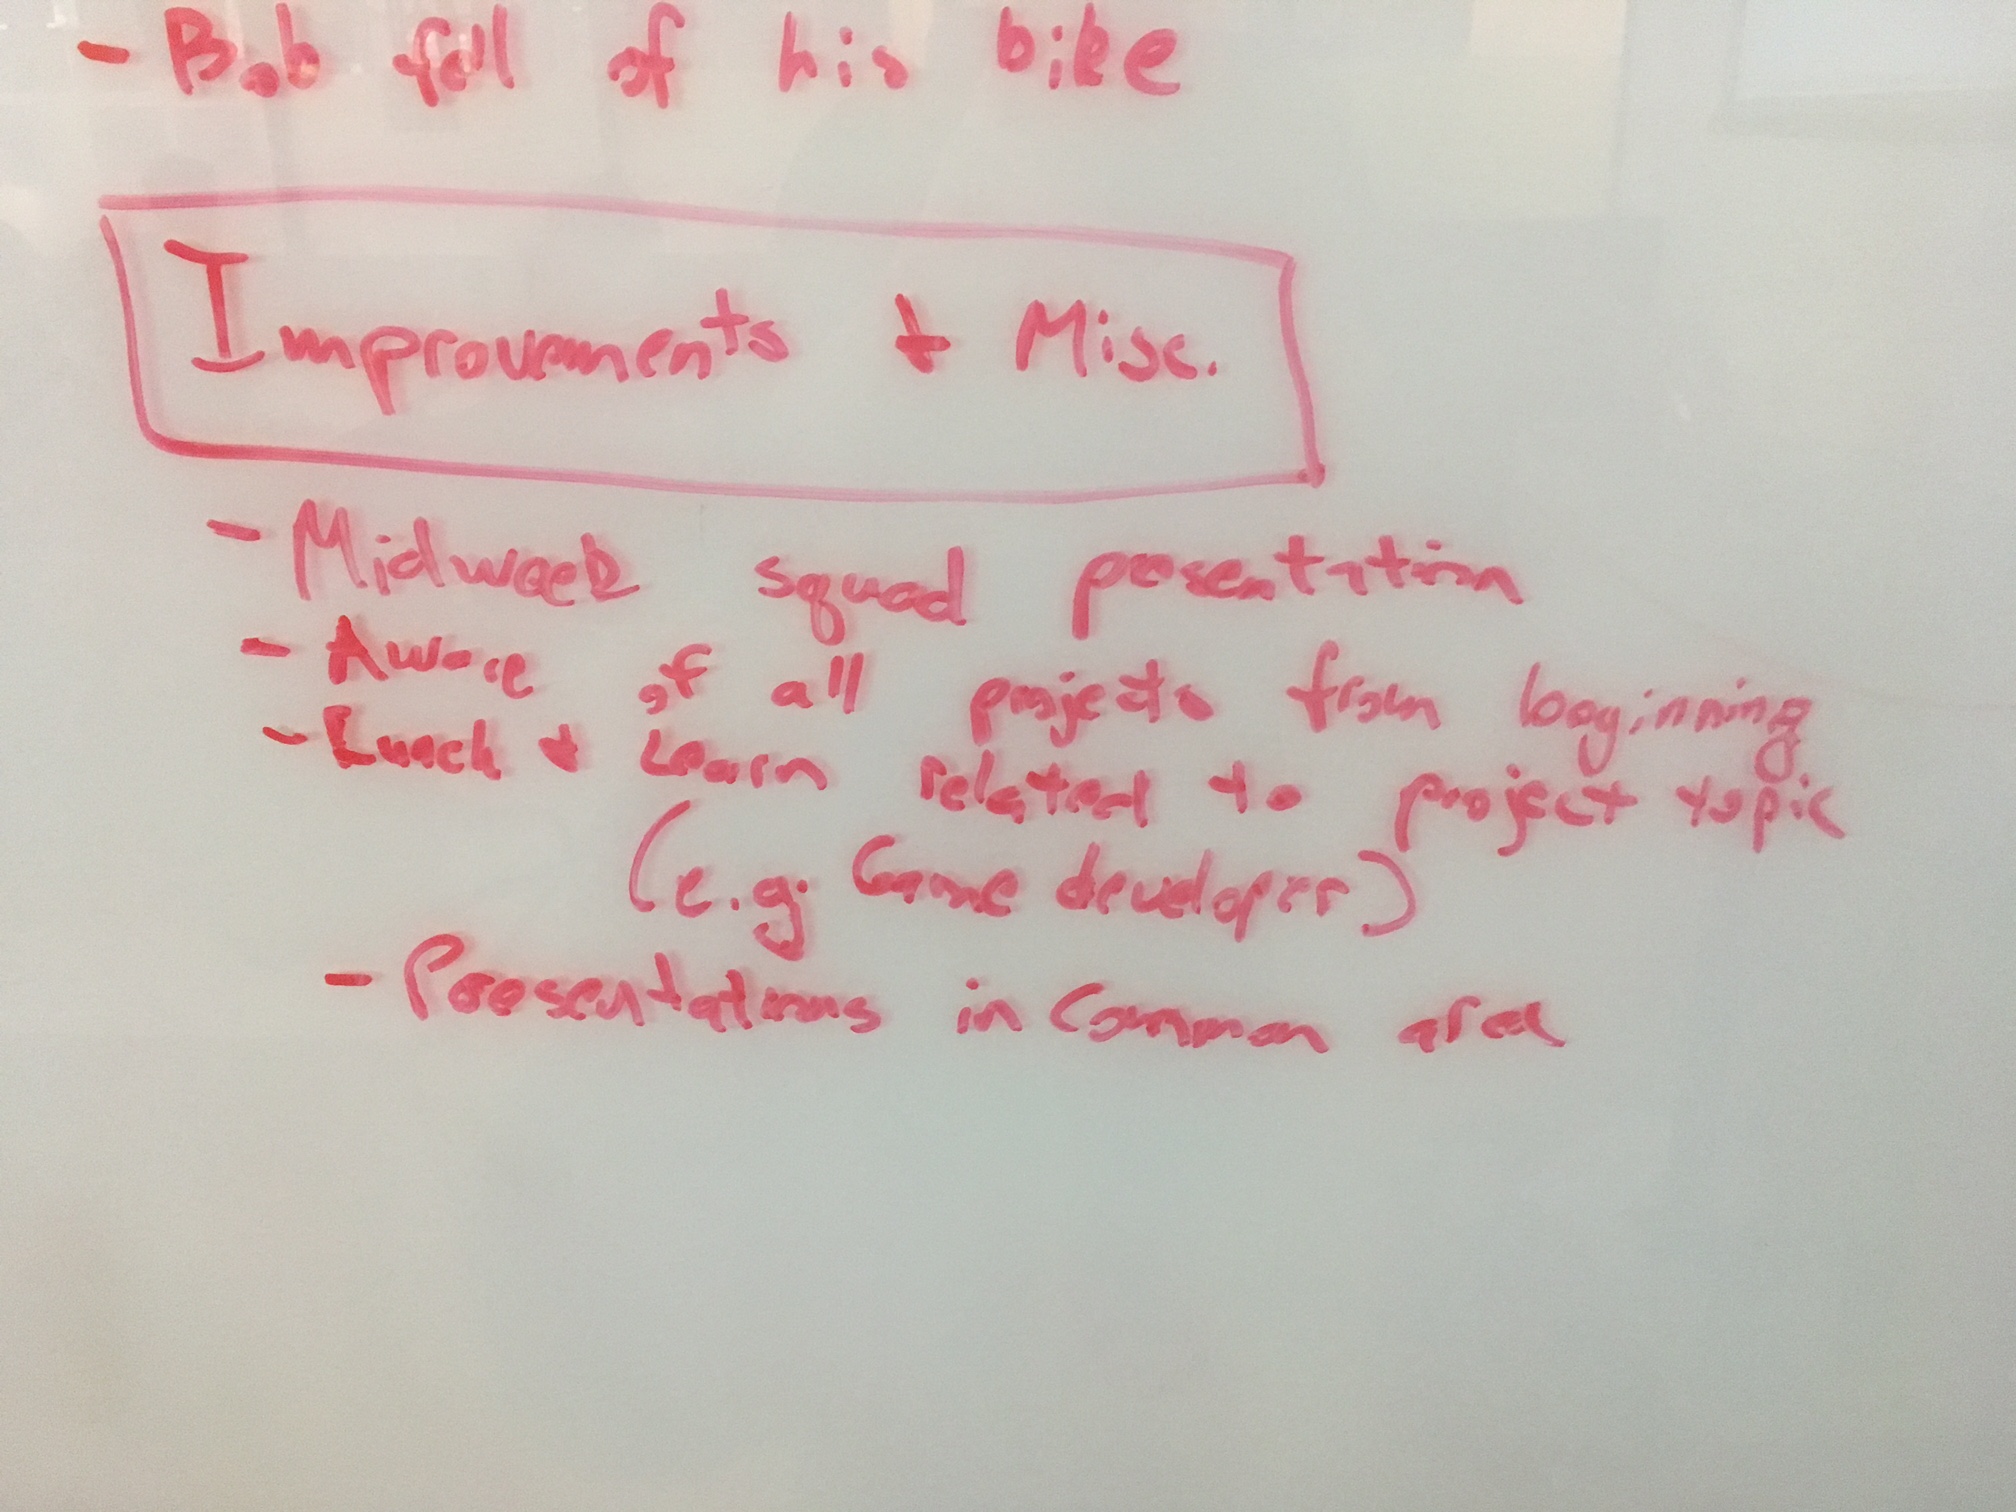 - Bob fell of his bike
Improvements + Misc.
- Midweek squad presentation
- Aware of all projects from beginning
- Lunch + Learn related to project topic
(e.g. Game developer)
- Presentations in Common area